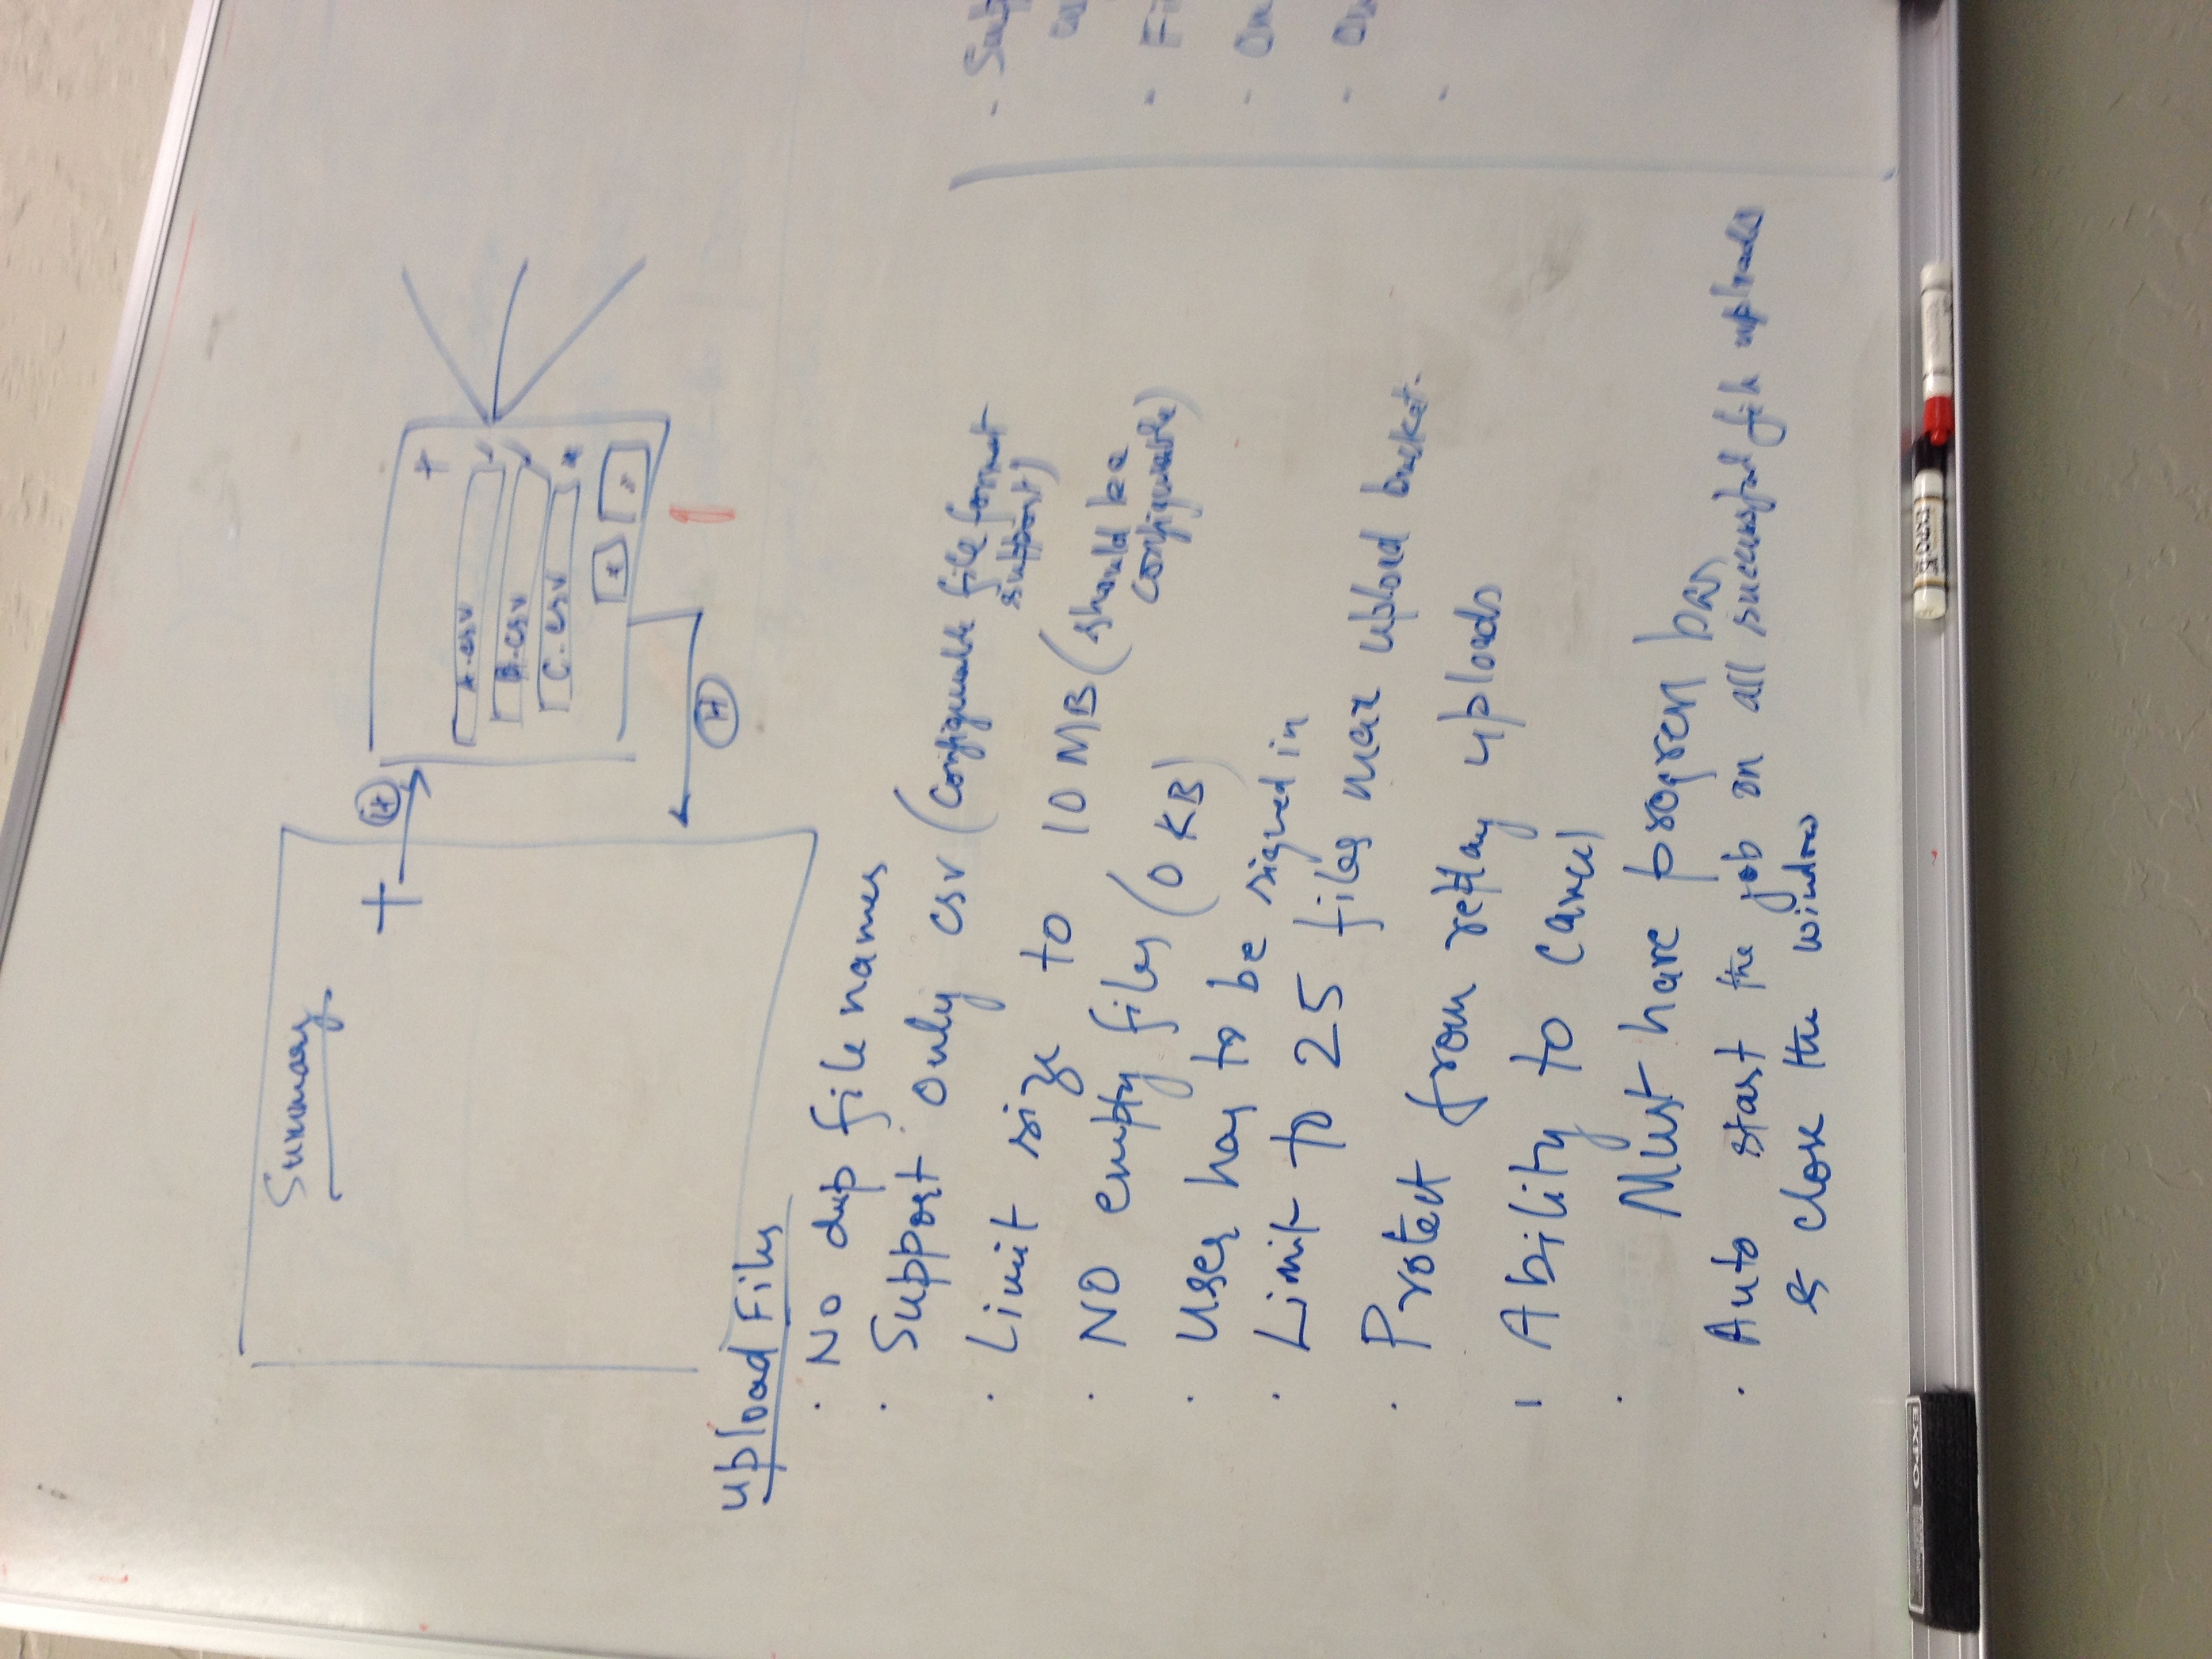 Summary
+
H
+
A.csv
B.csv
C.csv
H
Upload Files
· No dup file names
· Support only csv (configurable file format
support)
· Limit size to 10 MB (should be
configurable)
· NO empty files (0 KB)
· User has to be signed in
· Limit to 25 files max upload bucket.
· Protect from replay uploads
· Ability to cancel
· Must have progress bar
· Auto start the job on all successful file uploads
& close the window
EXPO
EXPO